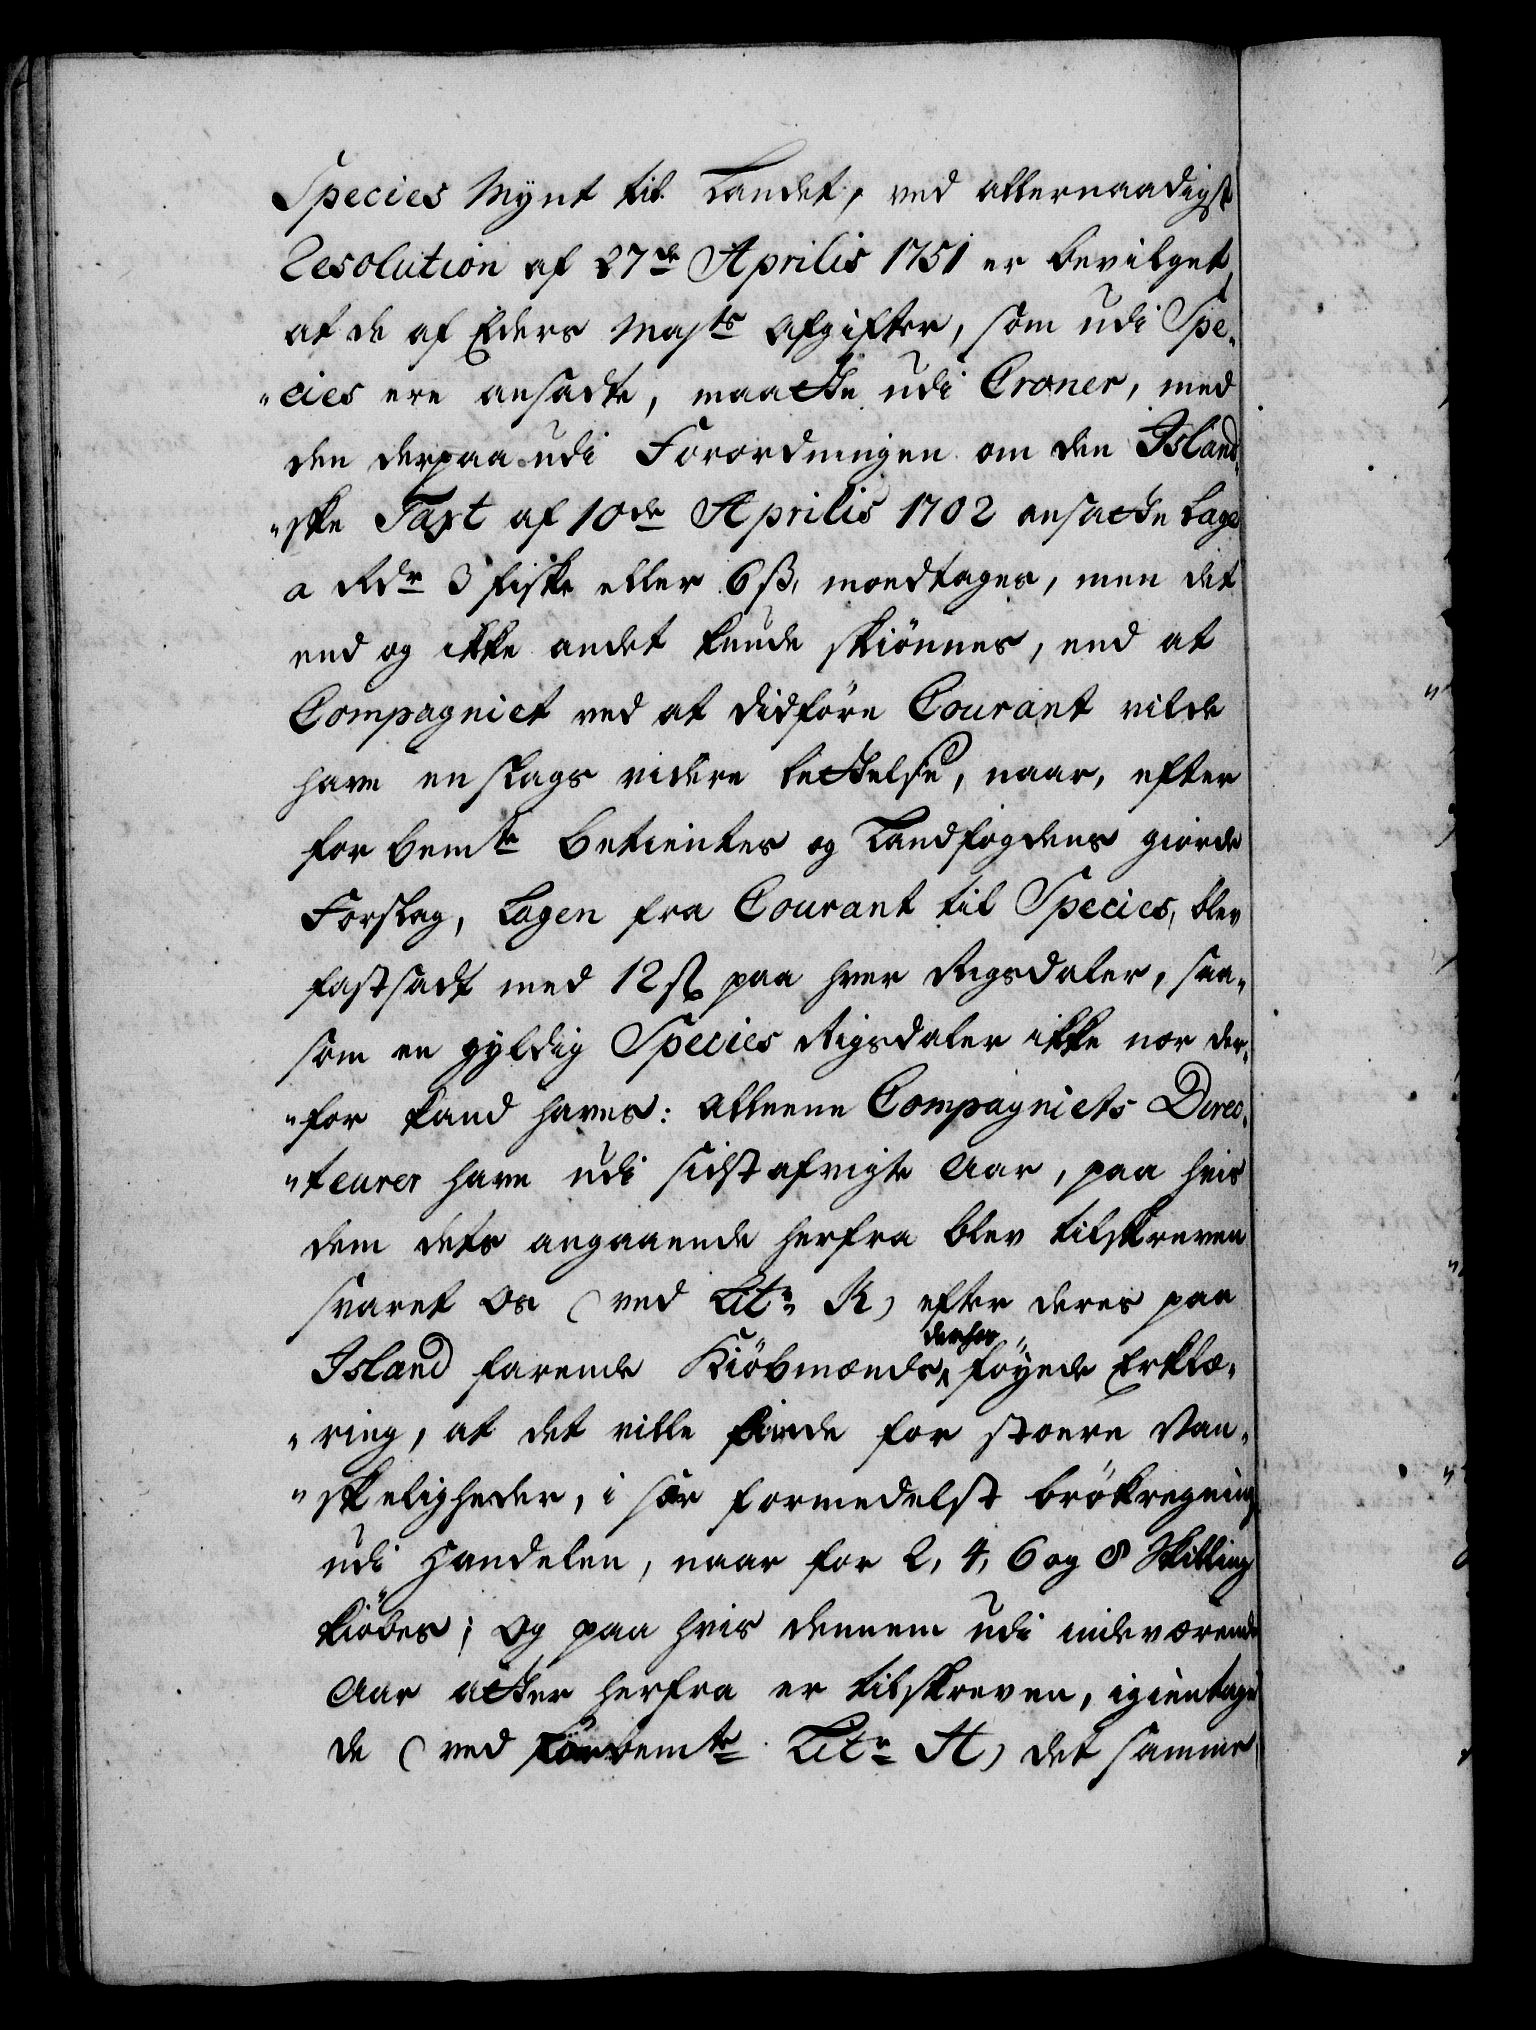 Species Mynt til Landet, ved allernaadigst
Resolution af 27de Aprilis 1751 er bevilget,
at de af Eders Majts Afgifter, som udi Spe„
„cies ere ansadte, maatte udi Croner, med
den derpaa udi Forordningen om den Island„
„ske Taxt af 10de Aprilis 1702 ansatte Lage
a Rdr 3 fiske eller 6 ß, modtages, men det
end og ikke andet kunde skiönnes, end at
Compagniet ved at didföre Courant vilde
have en slags videre lettelse, naar, efter
for bemte Betientes og Landfogdens giorde
Forslag, Lagen fra Courant til Species, blev
fastsadt med 12 ß paa hver Rigsdaler, saa„
som en gyldig Species Rigsdaler ikke nær der„
„for kand haves: Alleene Compagniets Direc„
„teurer have udi sidstafvigte Aar, paa hvis
dem dets angaaende herfra blev tilskreven
svaret os (ved Litr. K) efter deres paa
Island farende Kiöbmænds derhos föyede Erklæ„
„ring, at det ville finde for stoere Van„
„skeligheder, i sær formedelst brökregning
udi Handelen, naar for 2, 4, 6 og 8 Skilling
kiöbes; Og paa hvis dennem udi indeværende
Aar atter herfra er tilskreven, igientage
de (ved forbemte Litr A) det samme,